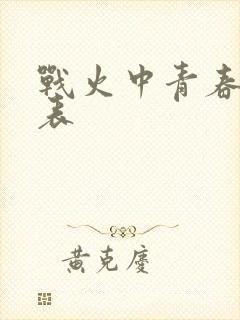 戰火中青春
表
黄克慶